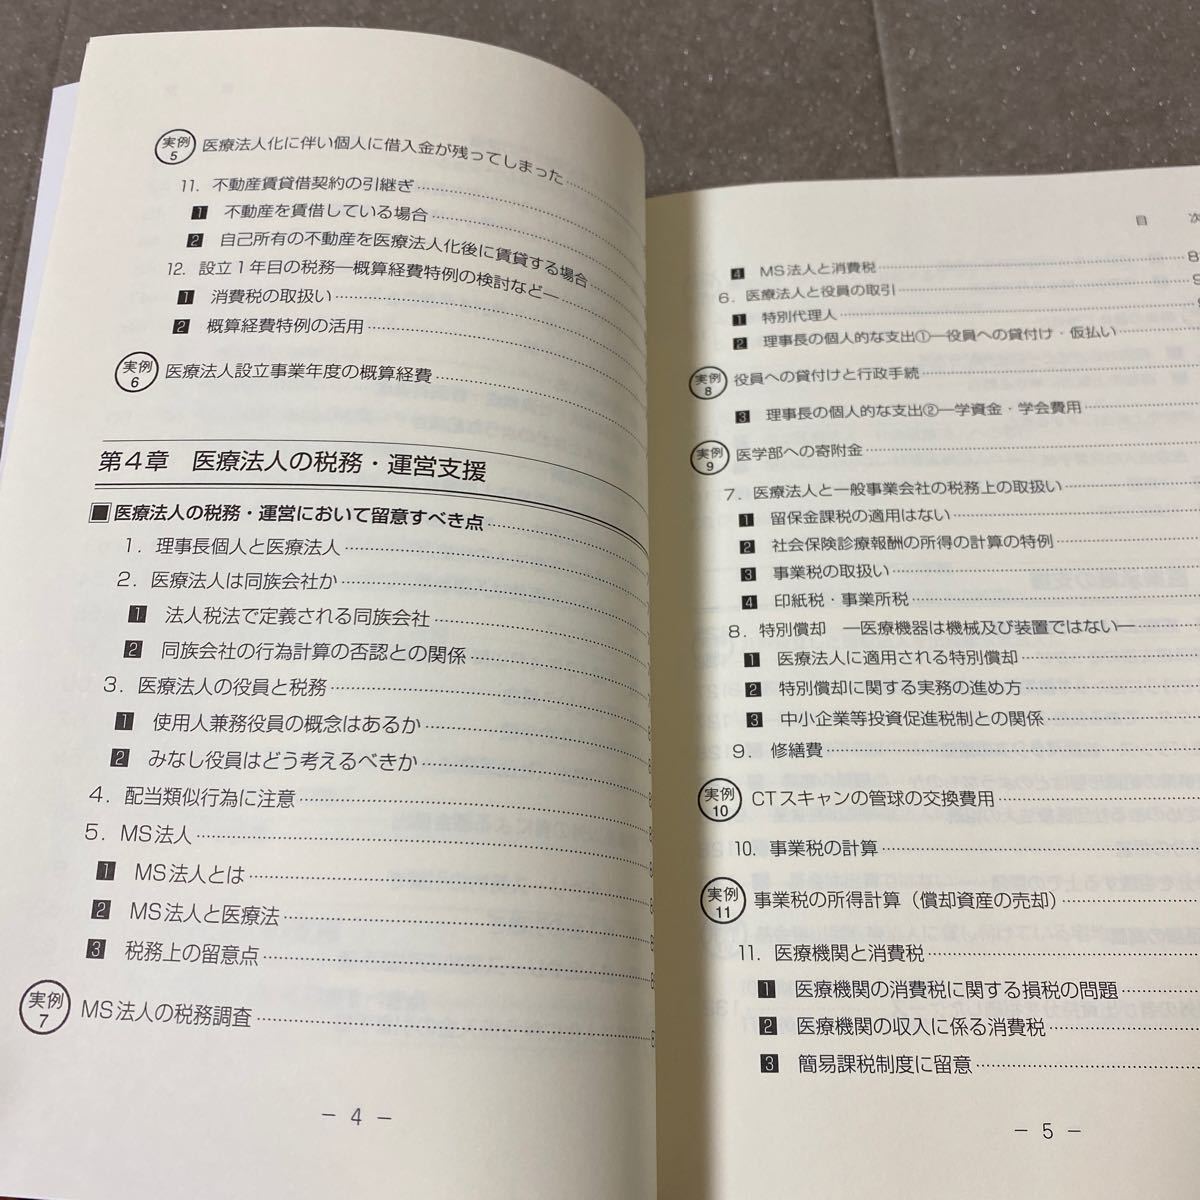 実例5 医療法人化に伴い個人に借入金が残ってしまった
11. 不動産賃貸借契約の引継ぎ
1 不動産を賃借している場合
2 自己所有の不動産を医療法人化後に賃貸する場合
12. 設立1年目の税務―概算経費特例の検討など―
1 消費税の取扱い
2 概算経費特例の活用
実例6 医療法人設立事業年度の概算経費
第4章 医療法人の税務・運営支援
■医療法人の税務・運営において留意すべき点
1. 理事長個人と医療法人
2. 医療法人は同族会社か
1 法人税法で定義される同族会社
2 同族会社の行為計算の否認との関係
3. 医療法人の役員と税務
1 使用人兼務役員の概念はあるか
2 みなし役員はどう考えるべきか
4. 配当類似行為に注意
5. MS法人
1 MS法人とは
2 MS法人と医療法
3 税務上の留意点
実例7 MS法人の税務調査
― 4 ―
目 次
4 MS法人と消費税
6. 医療法人と役員の取引
1 特別代理人
2 理事長の個人的な支出①―役員への貸付け・仮払い
実例8 役員への貸付けと行政手続
3 理事長の個人的な支出②―学資金・学会費用
実例9 医学部への寄附金
7. 医療法人と一般事業会社の税務上の取扱い
1 留保金課税の適用はない
2 社会保険診療報酬の所得の計算の特例
3 事業税の取扱い
4 印紙税・事業所税
8. 特別償却 ―医療機器は機械及び装置ではない―
1 医療法人に適用される特別償却
2 特別償却に関する実務の進め方
3 中小企業等投資促進税制との関係
9. 修繕費
実例10 CTスキャンの管球の交換費用
10. 事業税の計算
実例11 事業税の所得計算(償却資産の売却)
11. 医療機関と消費税
1 医療機関の消費税に関する損税の問題
2 医療機関の収入に係る消費税
3 簡易課税制度に留意
― 5 ―